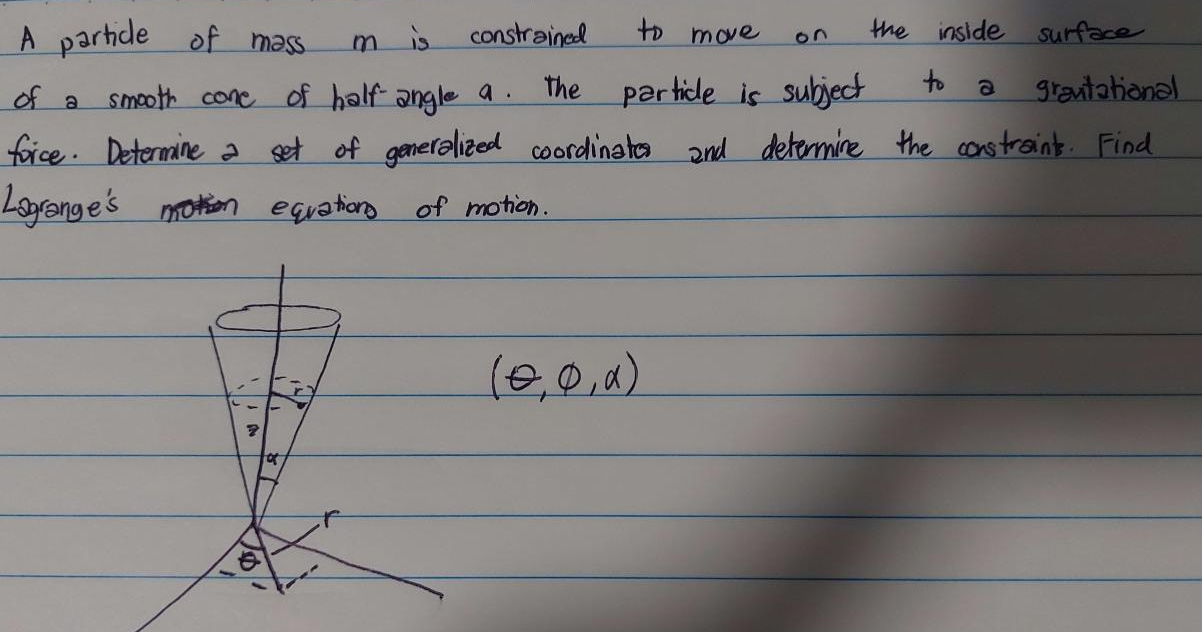 A particle of mass m is constrained to move on the inside surface
of a smooth cone of half-angle α. The particle is subject to a gravitational
force. Determine a set of generalized coordinates and determine the constraints. Find
Lagrange's motion equations of motion.
(θ, φ, α)
r
z
α
r
θ